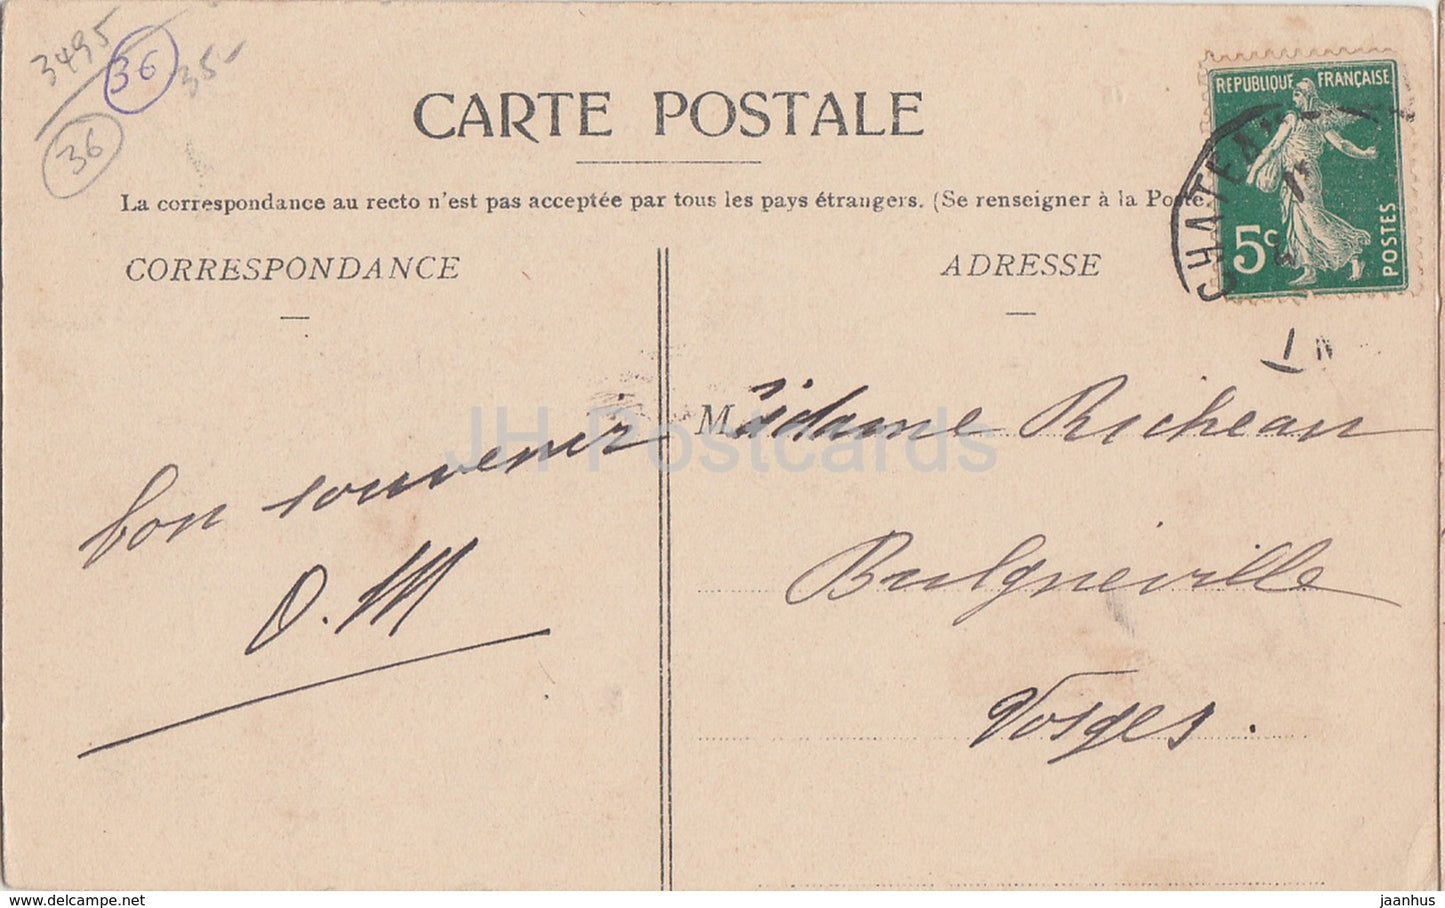 3495
36
35-
36
CARTE POSTALE
La correspondance au recto n'est pas acceptée par tous les pays étrangers. (Se renseigner à la Poste
REPUBLIQUE FRANÇAISE
5c
POSTES
CHATEAU
CORRESPONDANCE
ADRESSE
bon souvenir
O. M
Madame Richeau
Bulgneville
Vosges.
JH Postcards
www.hippostcard.com/store/jh-postcards
jaanhus